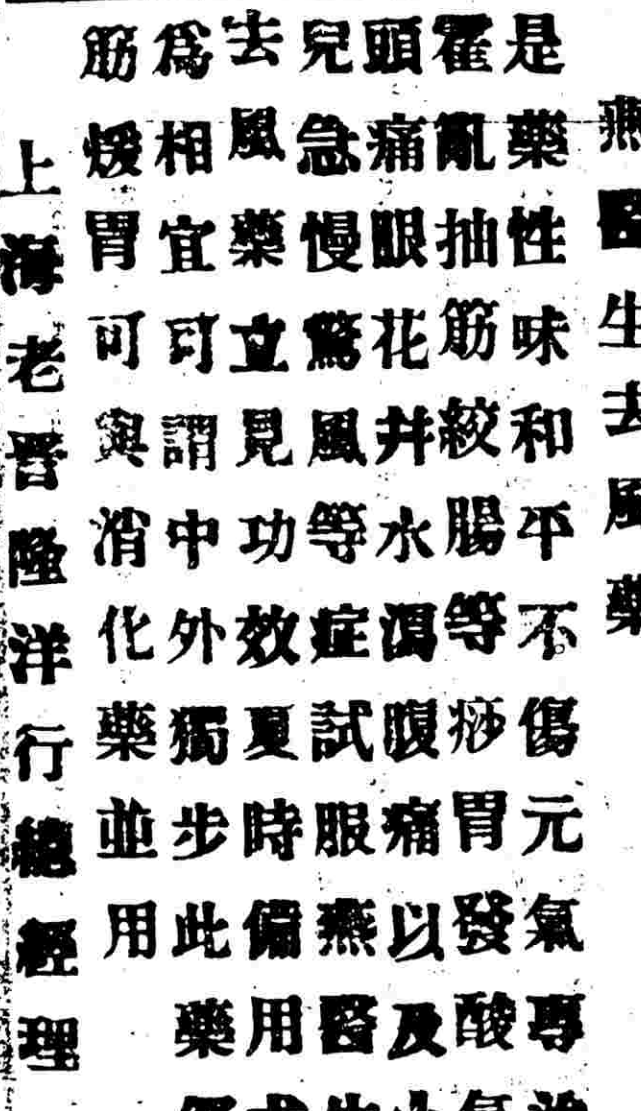 燕醫生去風藥
是藥性味和平不傷元氣專治
霍亂抽筋絞腸等痧胃發酸氣
頭痛眼花井水瀉腹痛以及小
兒急慢驚風等症試服燕醫生
去風藥立見功效夏時備用尤
爲相宜可謂中外獨步此藥
筋煖胃可與消化藥並用
上海老晋隆洋行總經理